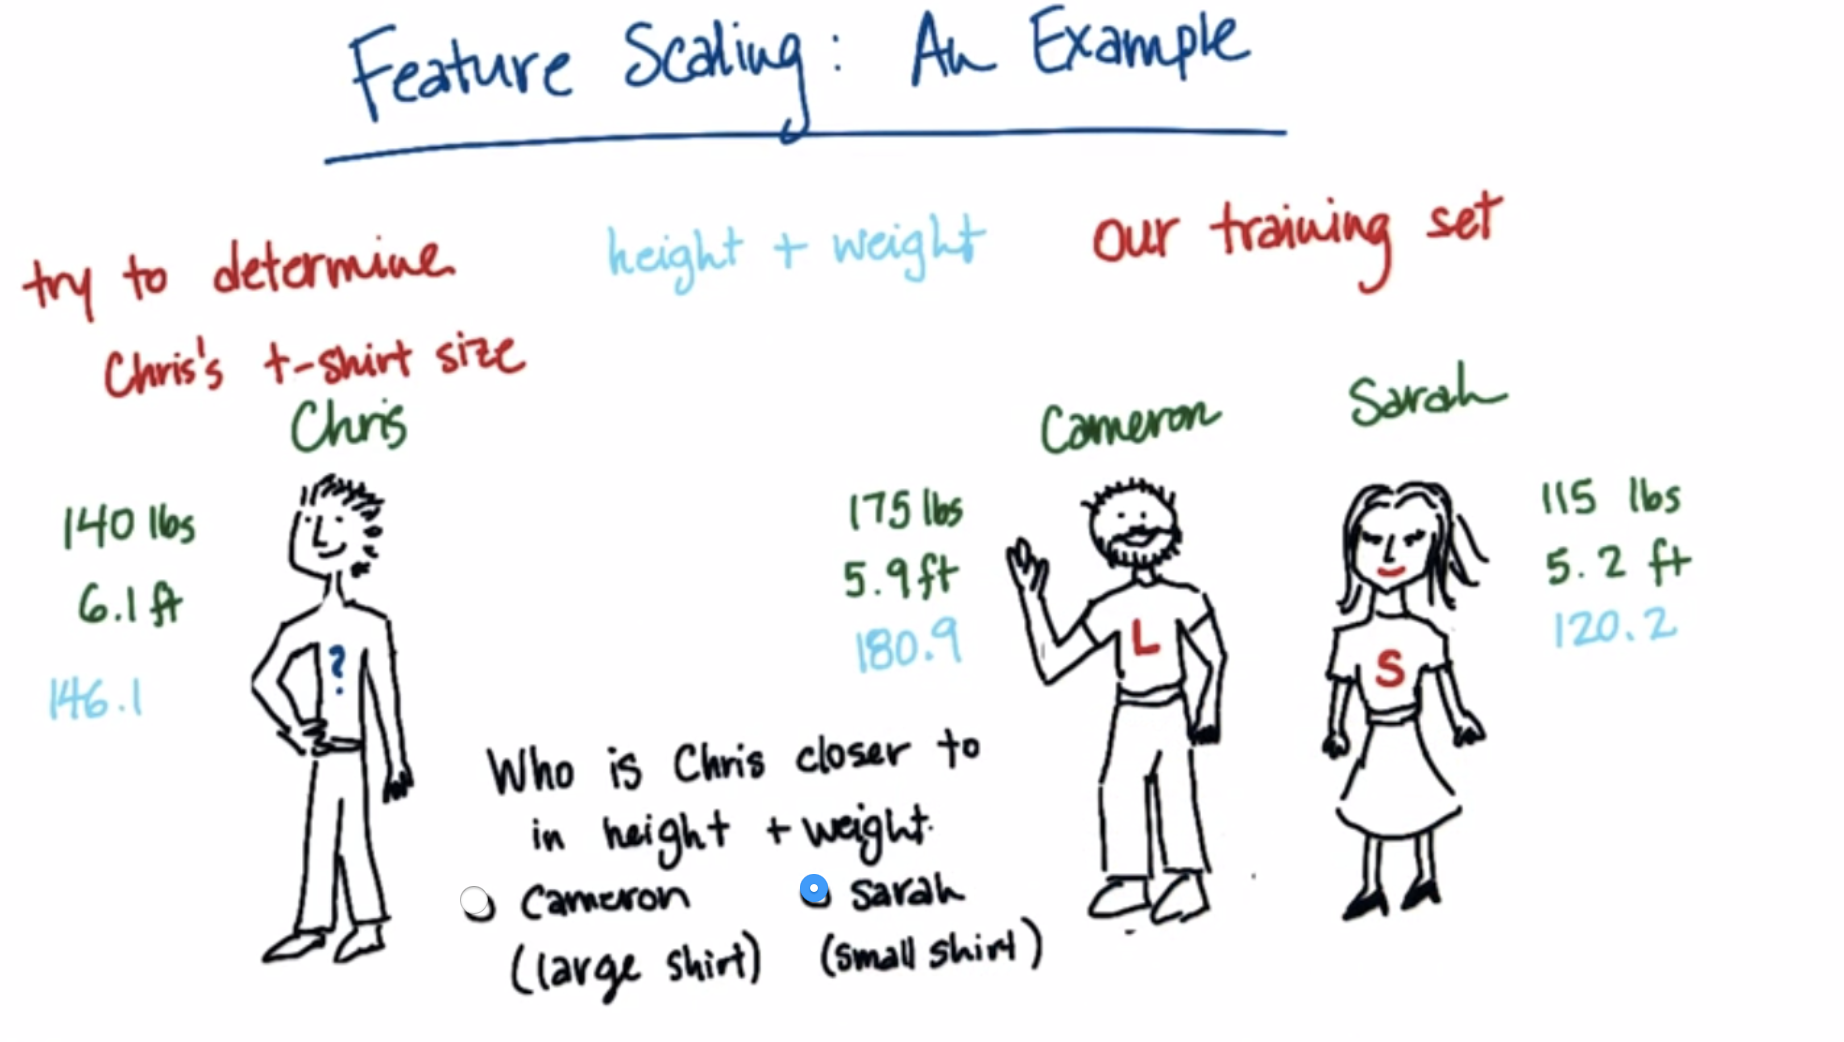 Feature Scaling: An Example
try to determine
Chris's t-shirt size
height + weight
our training set
Chris
140 lbs
6.1 ft
146.1
?
Cameron
175 lbs
5.9 ft
180.9
L
Sarah
115 lbs
5.2 ft
120.2
S
Who is Chris closer to
in height + weight.
Cameron
(large shirt)
Sarah
(small shirt)